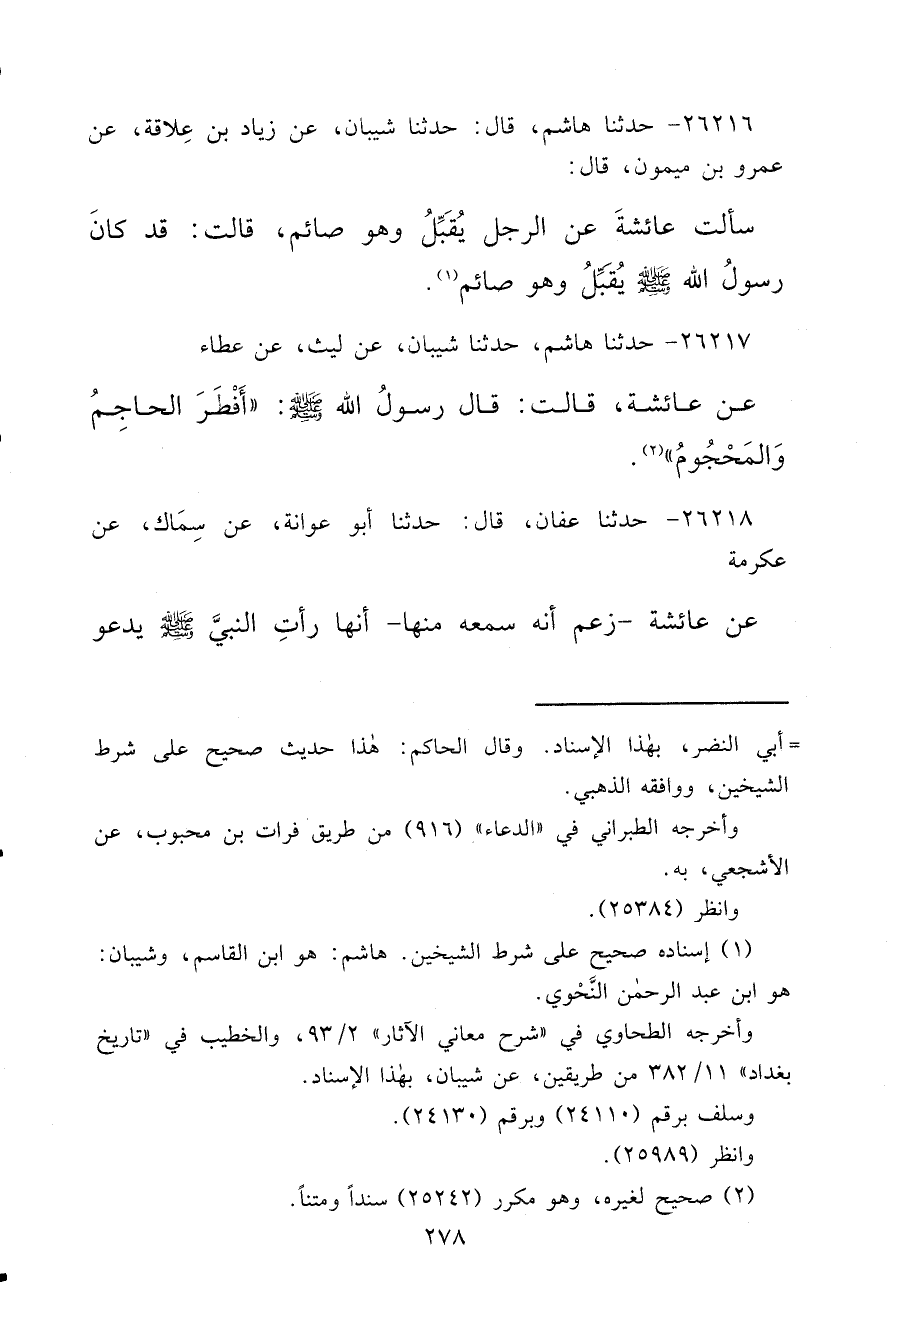 ٢٦٢١٦- حدثنا هاشم، قال: حدثنا شيبان، عن زياد بن عِلاقة، عن
عمرو بن ميمون، قال:
سألت عائشةَ عن الرجل يُقبِّلُ وهو صائم، قالت: قد كانَ
رسولُ الله ﷺ يُقبِّلُ وهو صائم(١).
٢٦٢١٧- حدثنا هاشم، حدثنا شيبان، عن ليث، عن عطاء
عن عائشة، قالت: قال رسولُ الله ﷺ: «أَفْطَرَ الحاجِمُ
وَالمَحْجُومُ»(٢).
٢٦٢١٨- حدثنا عفان، قال: حدثنا أبو عوانة، عن سِمَاك، عن
عكرمة
عن عائشة -زعم أنه سمعه منها- أنها رأتِ النبيَّ ﷺ يدعو
= أبي النضر، بهٰذا الإسناد. وقال الحاكم: هٰذا حديث صحيح على شرط
الشيخين، ووافقه الذهبي.
وأخرجه الطبراني في «الدعاء» (٩١٦) من طريق فرات بن محبوب، عن
الأشجعي، به.
وانظر (٢٥٣٨٤).
(١) إسناده صحيح على شرط الشيخين. هاشم: هو ابن القاسم، وشيبان:
هو ابن عبد الرحمٰن النَّحْوي.
وأخرجه الطحاوي في «شرح معاني الآثار» ٩٣/٢، والخطيب في «تاريخ
بغداد» ٣٨٢/١١ من طريقين، عن شيبان، بهٰذا الإسناد.
وسلف برقم (٢٤١١٠) وبرقم (٢٤١٣٠).
وانظر (٢٥٩٨٩).
(٢) صحيح لغيره، وهو مكرر (٢٥٢٤٢) سنداً ومتناً.
٢٧٨